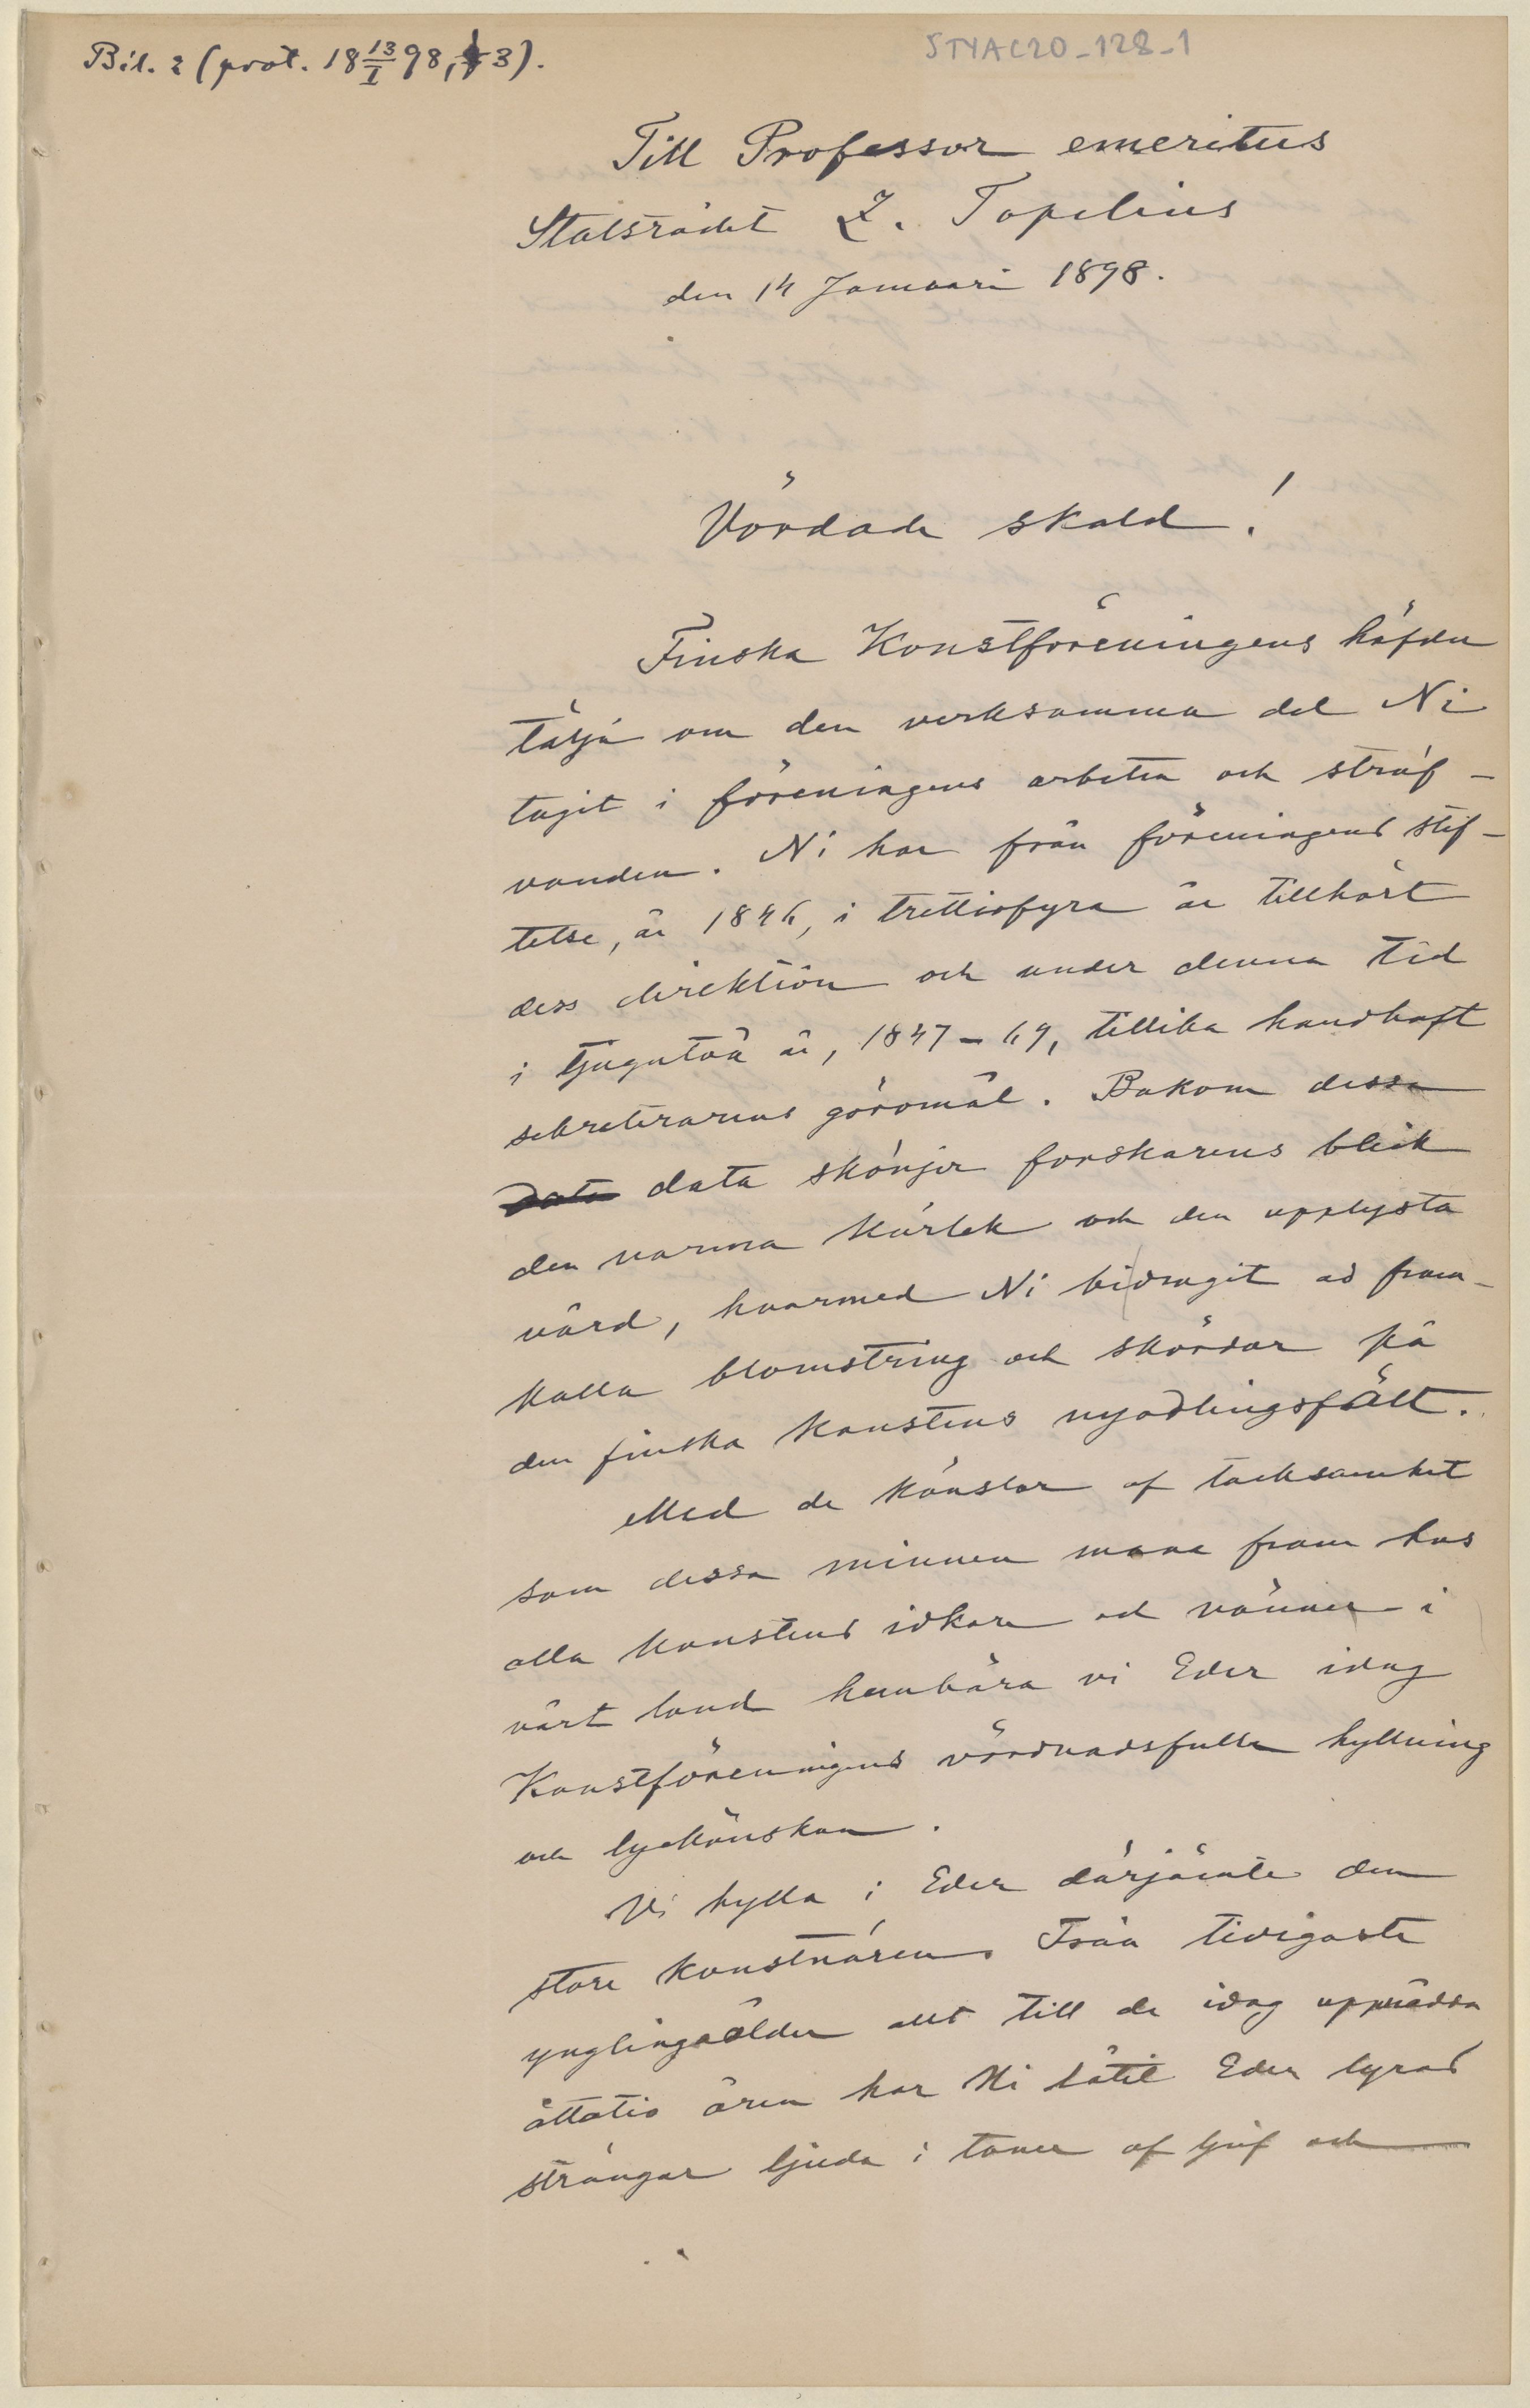 Bil. 2 (prot. 18 13/I 98, § 3).
STYAC20-128-1
Till Professor emeritus
Statsrådet Z. Topelius
den 14 Januari 1898.
Vördade skald!
Finska Konstföreningens häfder
tälja om den verksamma del Ni
tagit i föreningens arbeten och sträf-
vanden. Ni har från föreningens stif-
telse, år 1846, i trettiofyra år tillhört
dess direktion och under denna tid
i tjugutvå år, 1847-69, tillika handhaft
sekreterarens göromål. Bakom dessa
data data skönjer forskarens blick
den varma kärlek och den upplysta
vård, hvarmed Ni bidragit ad fram-
kalla blomstring och skördar på
den finska konstens nyodlingsfält.
Med de känslor af tacksamhet
som dessa minnen mana fram hos
alla konstens idkare och vänner i
vårt land hembära vi Eder idag
Konstföreningens vördnadsfulla hyllning
och lyckönskan.
Vi hylla i Eder därjämte den
store konstnären. Från tidigaste
ynglingaålder allt till de idag uppnådda
åttatio åren har Ni låtit Eder lyras
strängar ljuda i toner af ljuf och